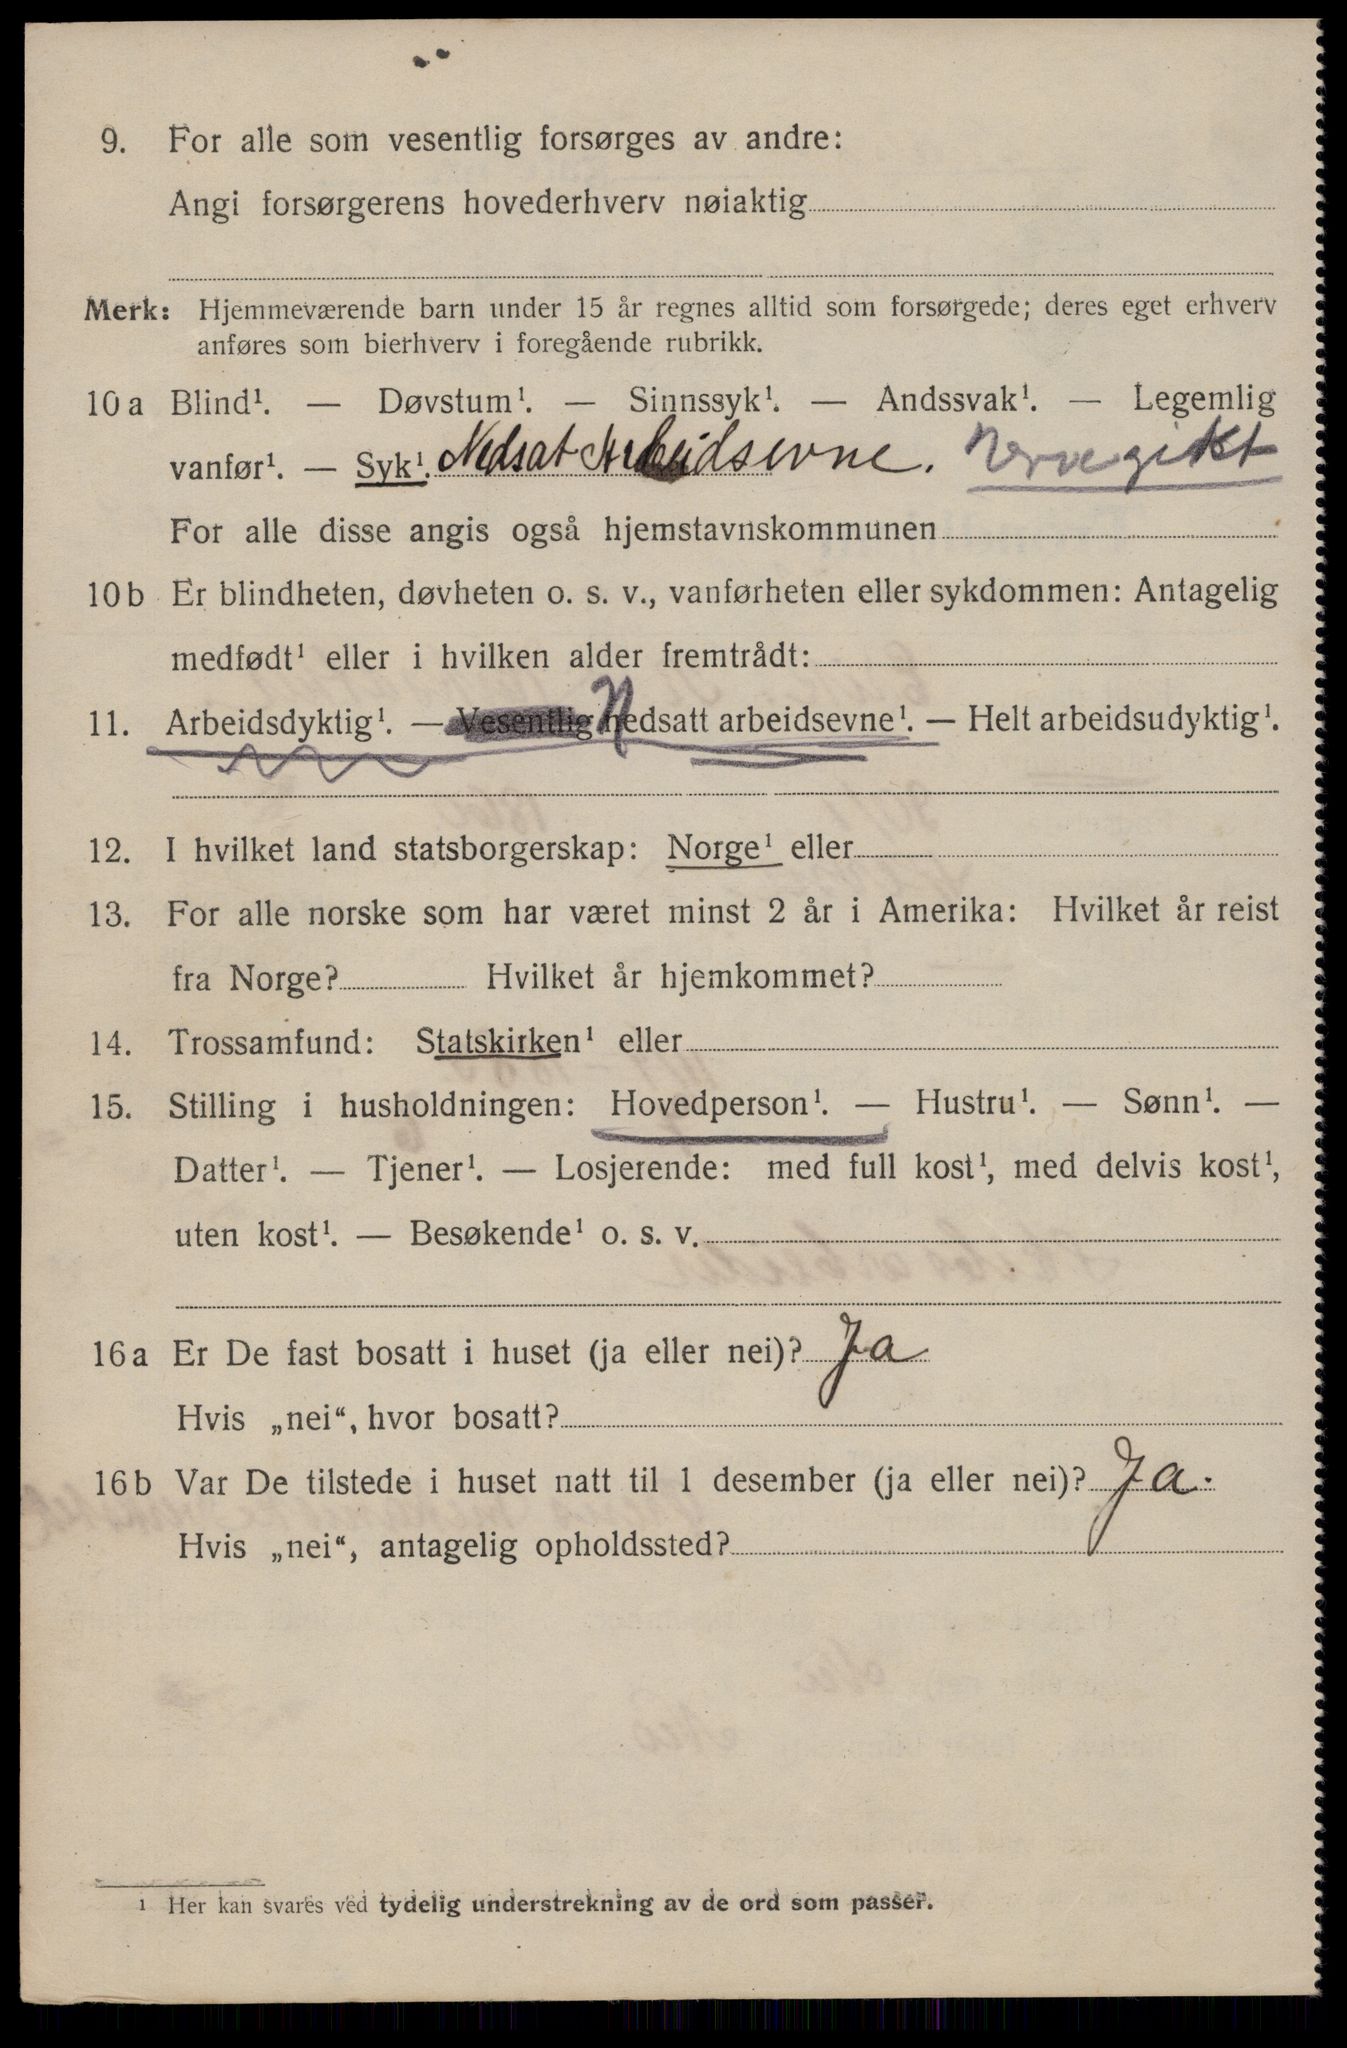 9. For alle som vesentlig forsørges av andre:
Angi forsørgerens hovederhverv nøiaktig
Merk: Hjemmeværende barn under 15 år regnes alltid som forsørgede; deres eget erhverv
anføres som bierhverv i foregående rubrikk.
10 a Blind¹. — Døvstum¹. — Sinnssyk¹. — Andssvak¹. — Legemlig
vanfør¹. — Syk¹. Nedsat Arbeidsevne. Nervegikt
For alle disse angis også hjemstavnskommunen
10 b Er blindheten, døvheten o. s. v., vanførheten eller sykdommen: Antagelig
medfødt¹ eller i hvilken alder fremtrådt:
11. Arbeidsdyktig¹. — Vesentlig Nedsatt arbeidsevne¹. — Helt arbeidsudyktig¹.
12. I hvilket land statsborgerskap: Norge¹ eller
13. For alle norske som har været minst 2 år i Amerika: Hvilket år reist
fra Norge? Hvilket år hjemkommet?
14. Trossamfund: Statskirken¹ eller
15. Stilling i husholdningen: Hovedperson¹. — Hustru¹. — Sønn¹. —
Datter¹. — Tjener¹. — Losjerende: med full kost¹, med delvis kost¹,
uten kost¹. — Besøkende¹ o. s. v.
16 a Er De fast bosatt i huset (ja eller nei)? Ja
Hvis „nei“, hvor bosatt?
16 b Var De tilstede i huset natt til 1 desember (ja eller nei)? Ja.
Hvis „nei“, antagelig opholdssted?
1 Her kan svares ved tydelig understrekning av de ord som passer.